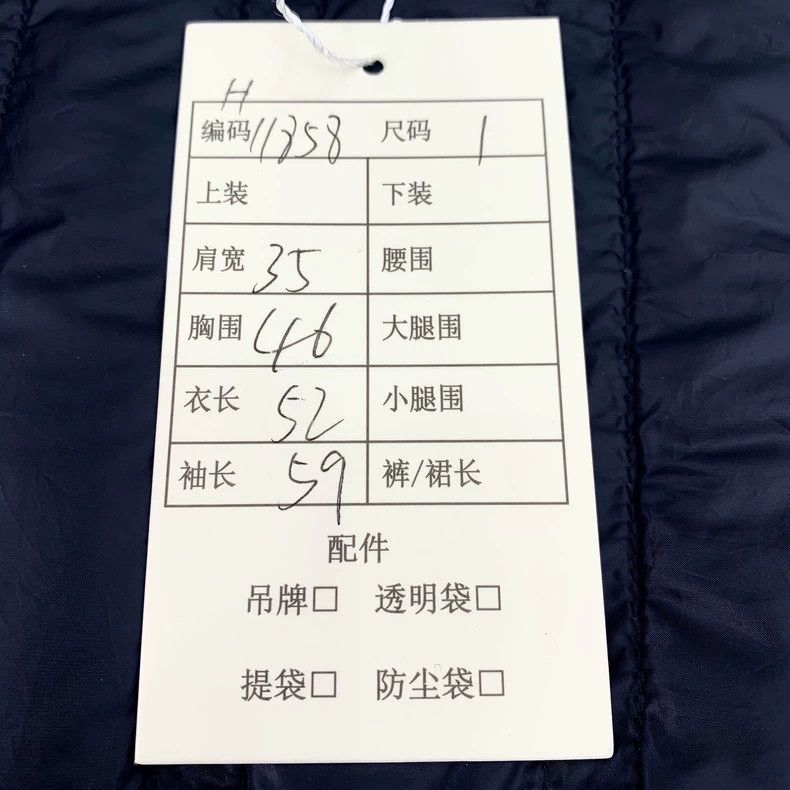 H
编码 11858 尺码 1
上装 下装
肩宽 35 腰围
胸围 46 大腿围
衣长 52 小腿围
袖长 59 裤/裙长
配件
吊牌□ 透明袋□
提袋□ 防尘袋□